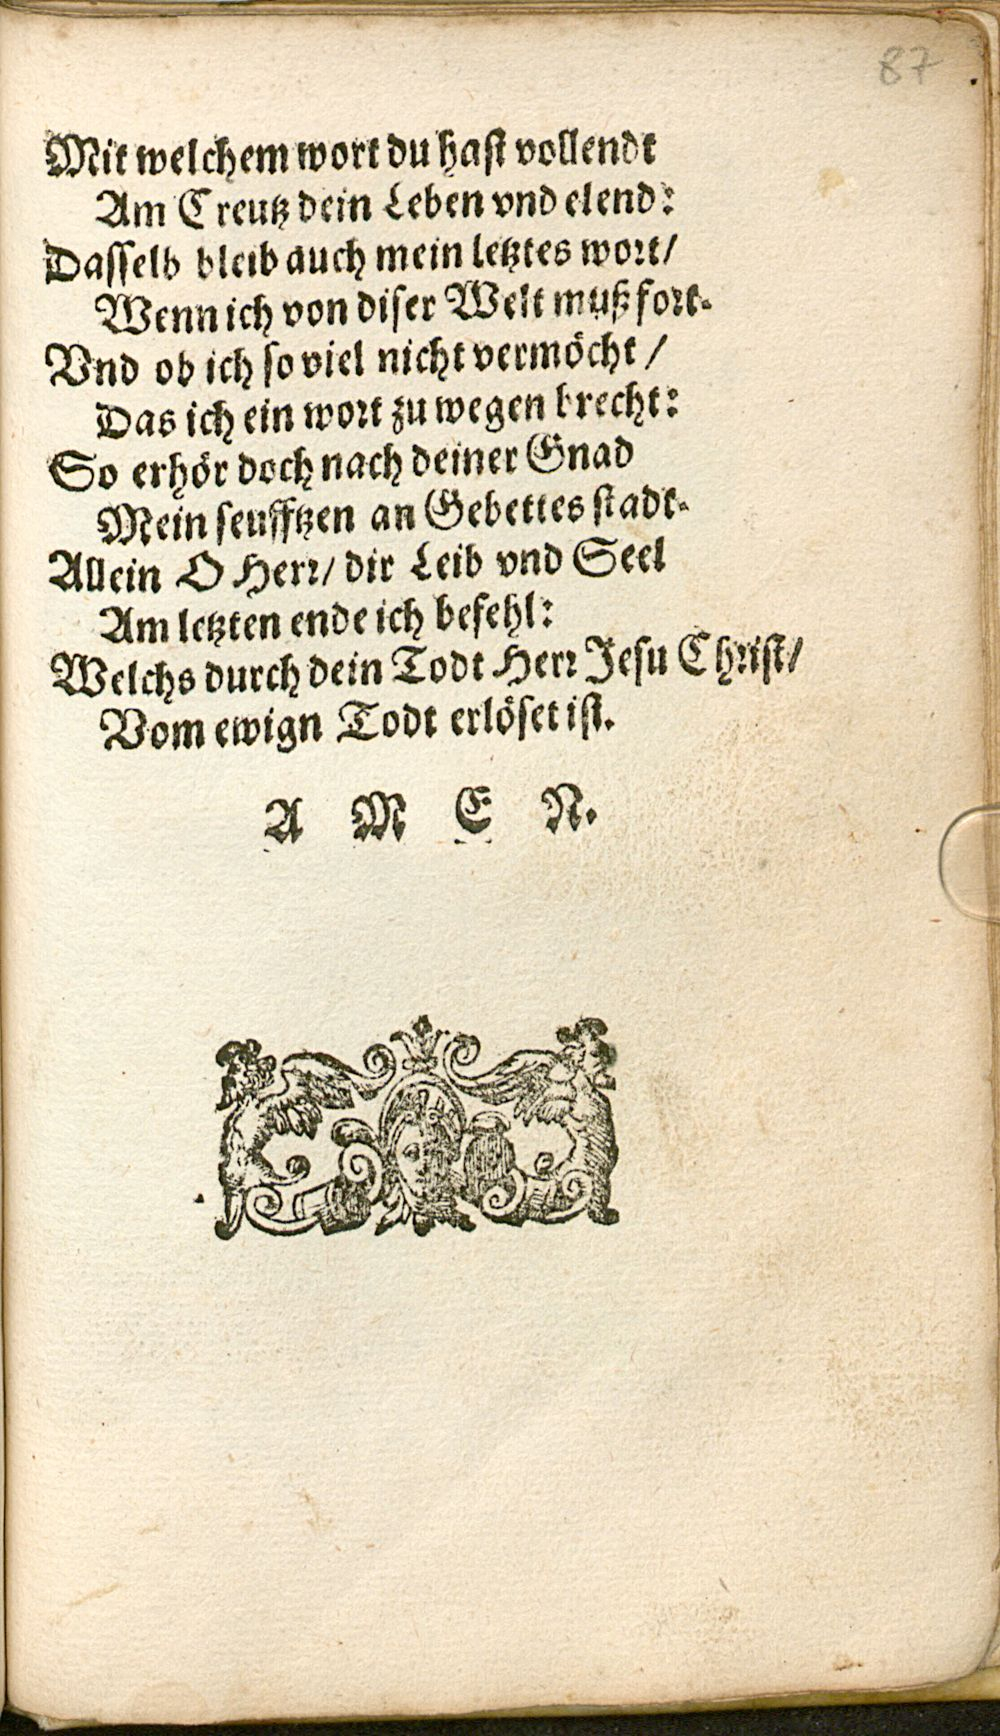 87
Mit welchem wort du hast vollendt
Am Creutz dein Leben vnd elend:
Dasselb bleib auch mein letztes wort/
Wenn ich von diser Welt muß fort.
Vnd ob ich so viel nicht vermöcht /
Das ich ein wort zu wegen brecht:
So erhör doch nach deiner Gnad
Mein seufftzen an Gebettes stadt.
Allein O Herr/ dir Leib vnd Seel
Am letzten ende ich befehl:
Welchs durch dein Todt Herr Jesu Christ/
Vom ewign Todt erlöset ist.
A M E N.